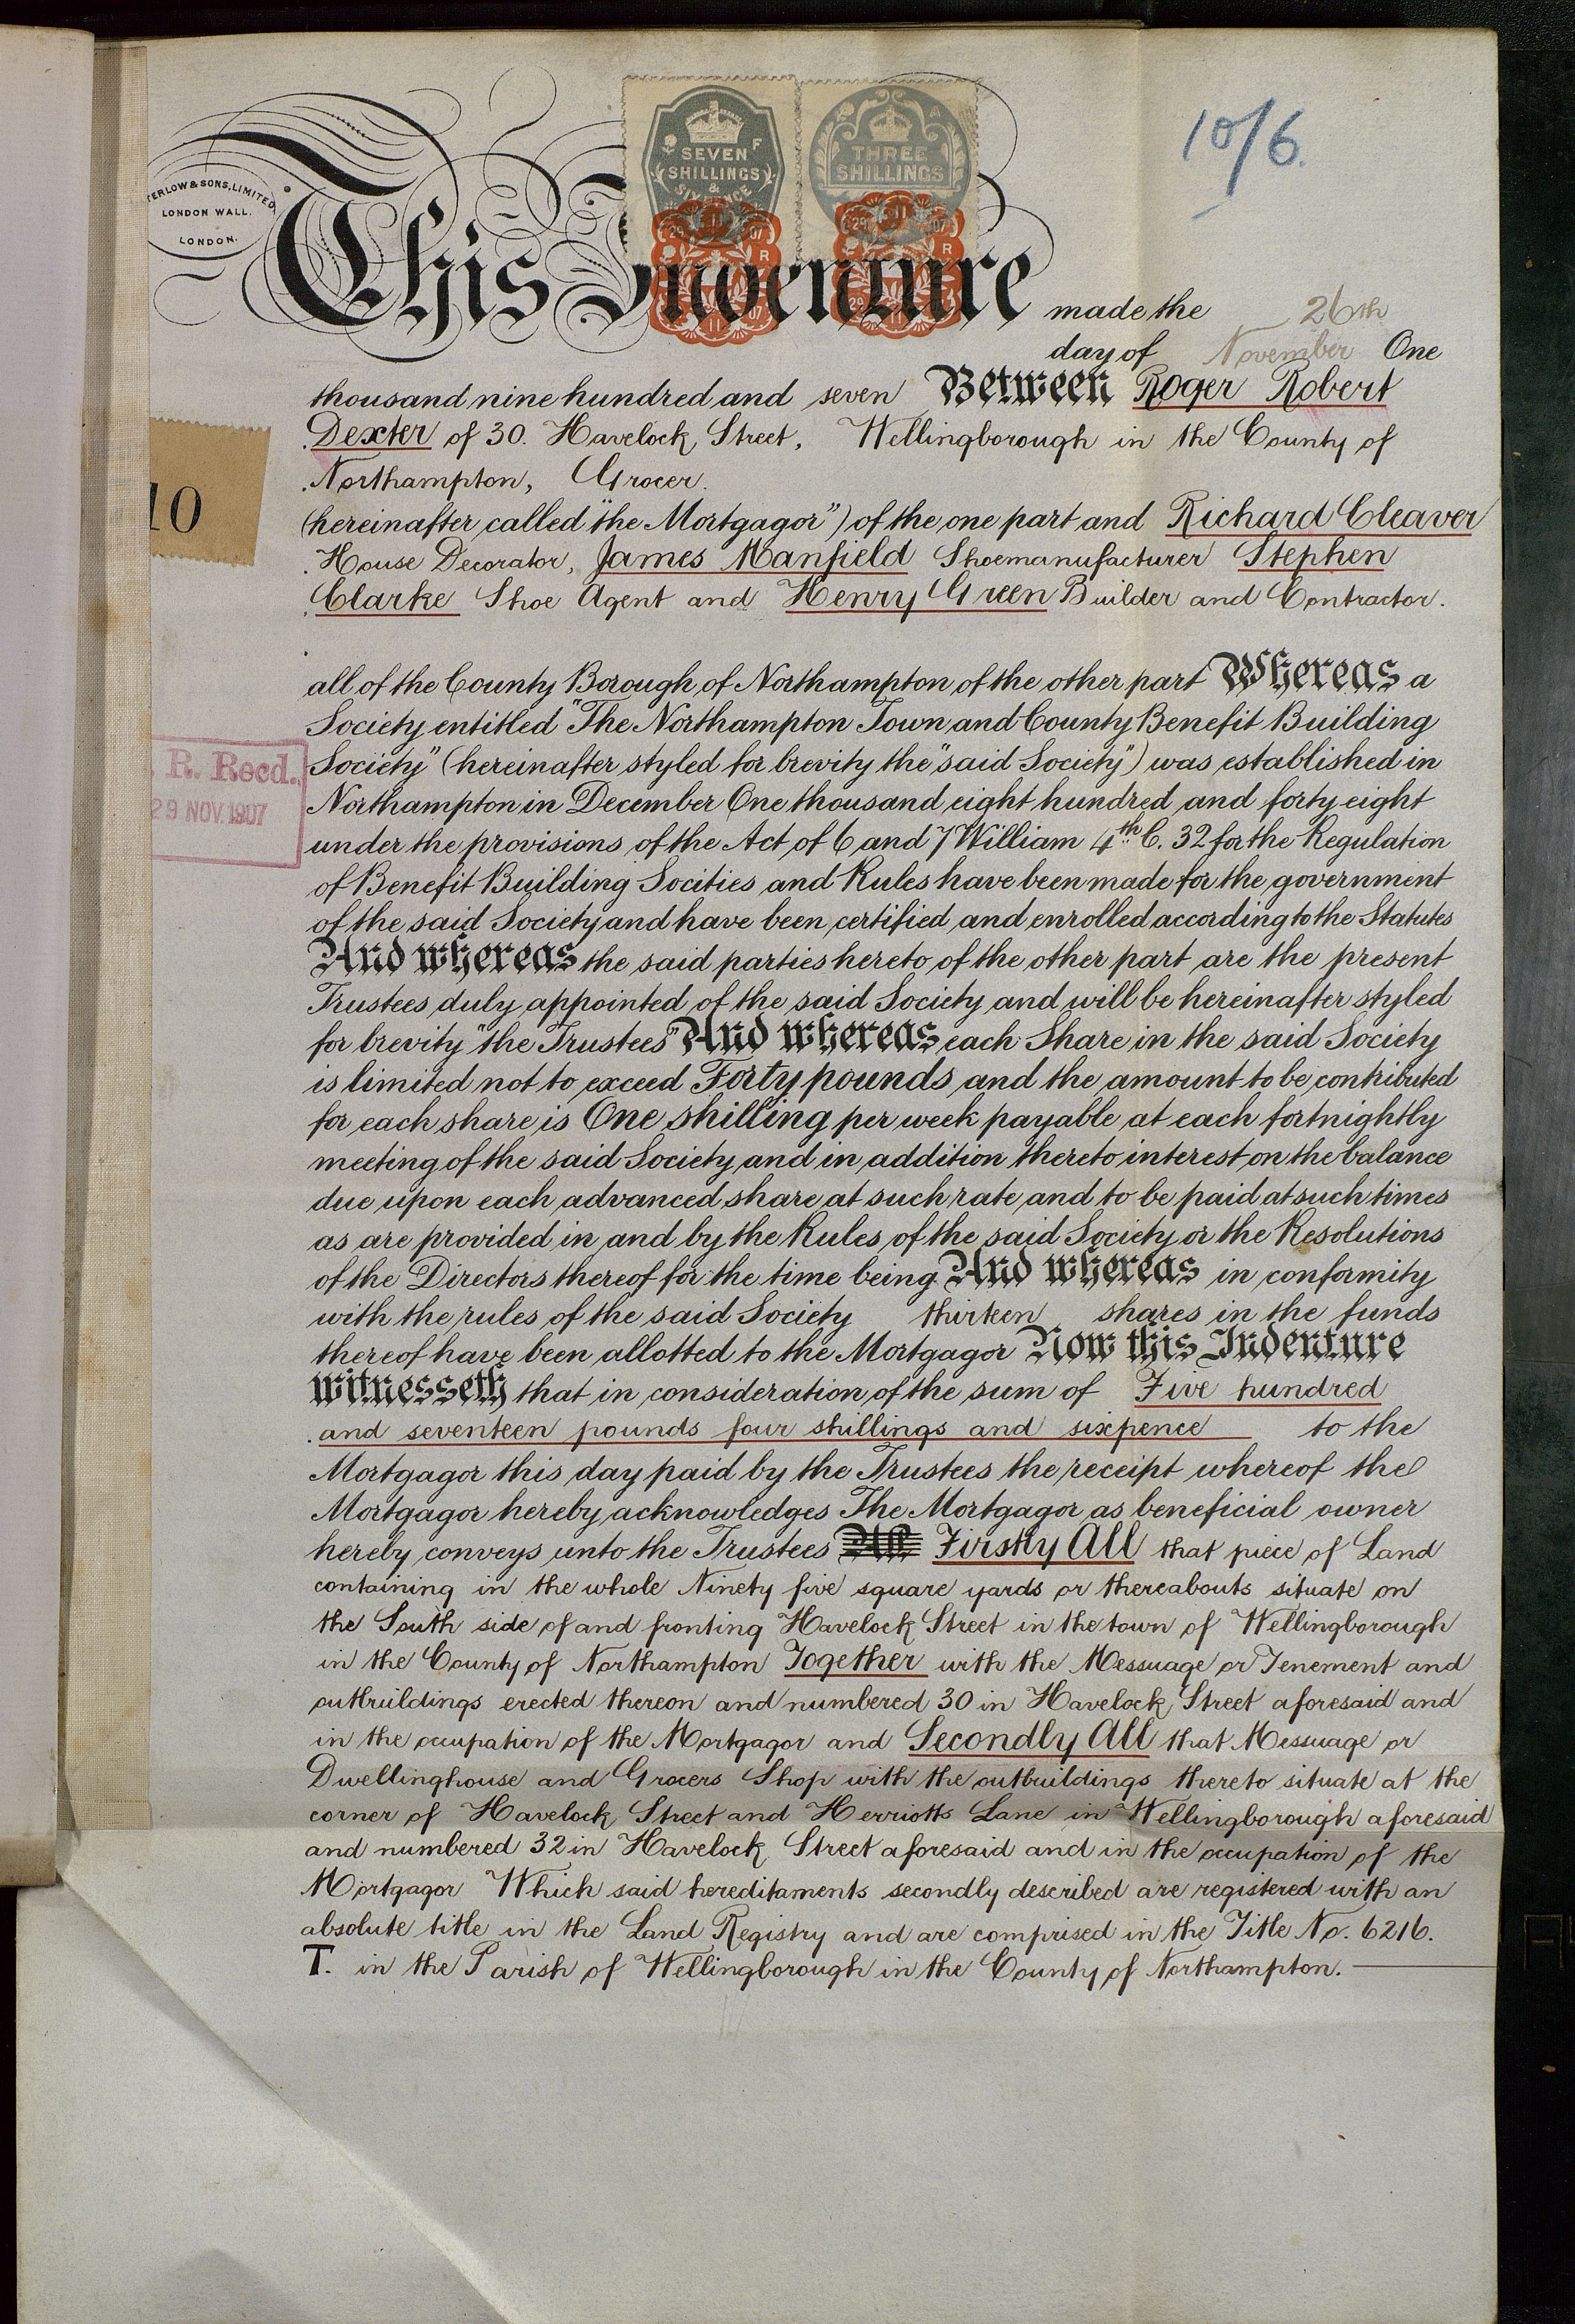 10/6.
SEVEN SHILLINGS & SIXPENCE
THREE SHILLINGS
29 11 07
29 11 07
TERLOW & SONS, LIMITED,
LONDON WALL.
LONDON.
This Indenture made the 26th
day of November One
thousand nine hundred and seven Between Roger Robert
Dexter of 30. Havelock Street, Wellingborough in the County of
Northampton, Grocer.
(hereinafter called "the Mortgagor") of the one part and Richard Cleaver
House Decorator, James Manfield Shoemanufacturer Stephen
Clarke Shoe Agent and Henry Green Builder and Contractor.
10
all of the County Borough of Northampton of the other part Whereas a
Society entitled "The Northampton Town and County Benefit Building
Society" (hereinafter styled for brevity the "said Society") was established in
R. Recd.
29 NOV. 1907
Northampton in December One thousand eight hundred and forty eight
under the provisions of the Act of 6 and 7 William 4th C. 32 for the Regulation
of Benefit Building Socities and Rules have been made for the government
of the said Society and have been certified and enrolled according to the Statutes
And whereas the said parties hereto of the other part are the present
Trustees duly appointed of the said Society and will be hereinafter styled
for brevity "the Trustees" And whereas each Share in the said Society
is limited not to exceed Forty pounds and the amount to be contributed
for each share is One shilling per week payable at each fortnightly
meeting of the said Society and in addition thereto interest on the balance
due upon each advanced share at such rate and to be paid at such times
as are provided in and by the Rules of the said Society or the Resolutions
of the Directors thereof for the time being And whereas in conformity
with the rules of the said Society thirteen shares in the funds
thereof have been allotted to the Mortgagor Now this Indenture
witnesseth that in consideration of the sum of Five hundred
and seventeen pounds four shillings and sixpence to the
Mortgagor this day paid by the Trustees the receipt whereof the
Mortgagor hereby acknowledges The Mortgagor as beneficial owner
hereby conveys unto the Trustees All Firstly All that piece of Land
containing in the whole Ninety five square yards or thereabouts situate on
the South side of and fronting Havelock Street in the town of Wellingborough
in the County of Northampton Together with the Messuage or Tenement and
outbuildings erected thereon and numbered 30 in Havelock Street aforesaid and
in the occupation of the Mortgagor and Secondly All that Messuage or
Dwellinghouse and Grocers Shop with the outbuildings thereto situate at the
corner of Havelock Street and Herriotts Lane in Wellingborough aforesaid
and numbered 32 in Havelock Street aforesaid and in the occupation of the
Mortgagor Which said hereditaments secondly described are registered with an
absolute title in the Land Registry and are comprised in the Title No. 6216.
T. in the Parish of Wellingborough in the County of Northampton.